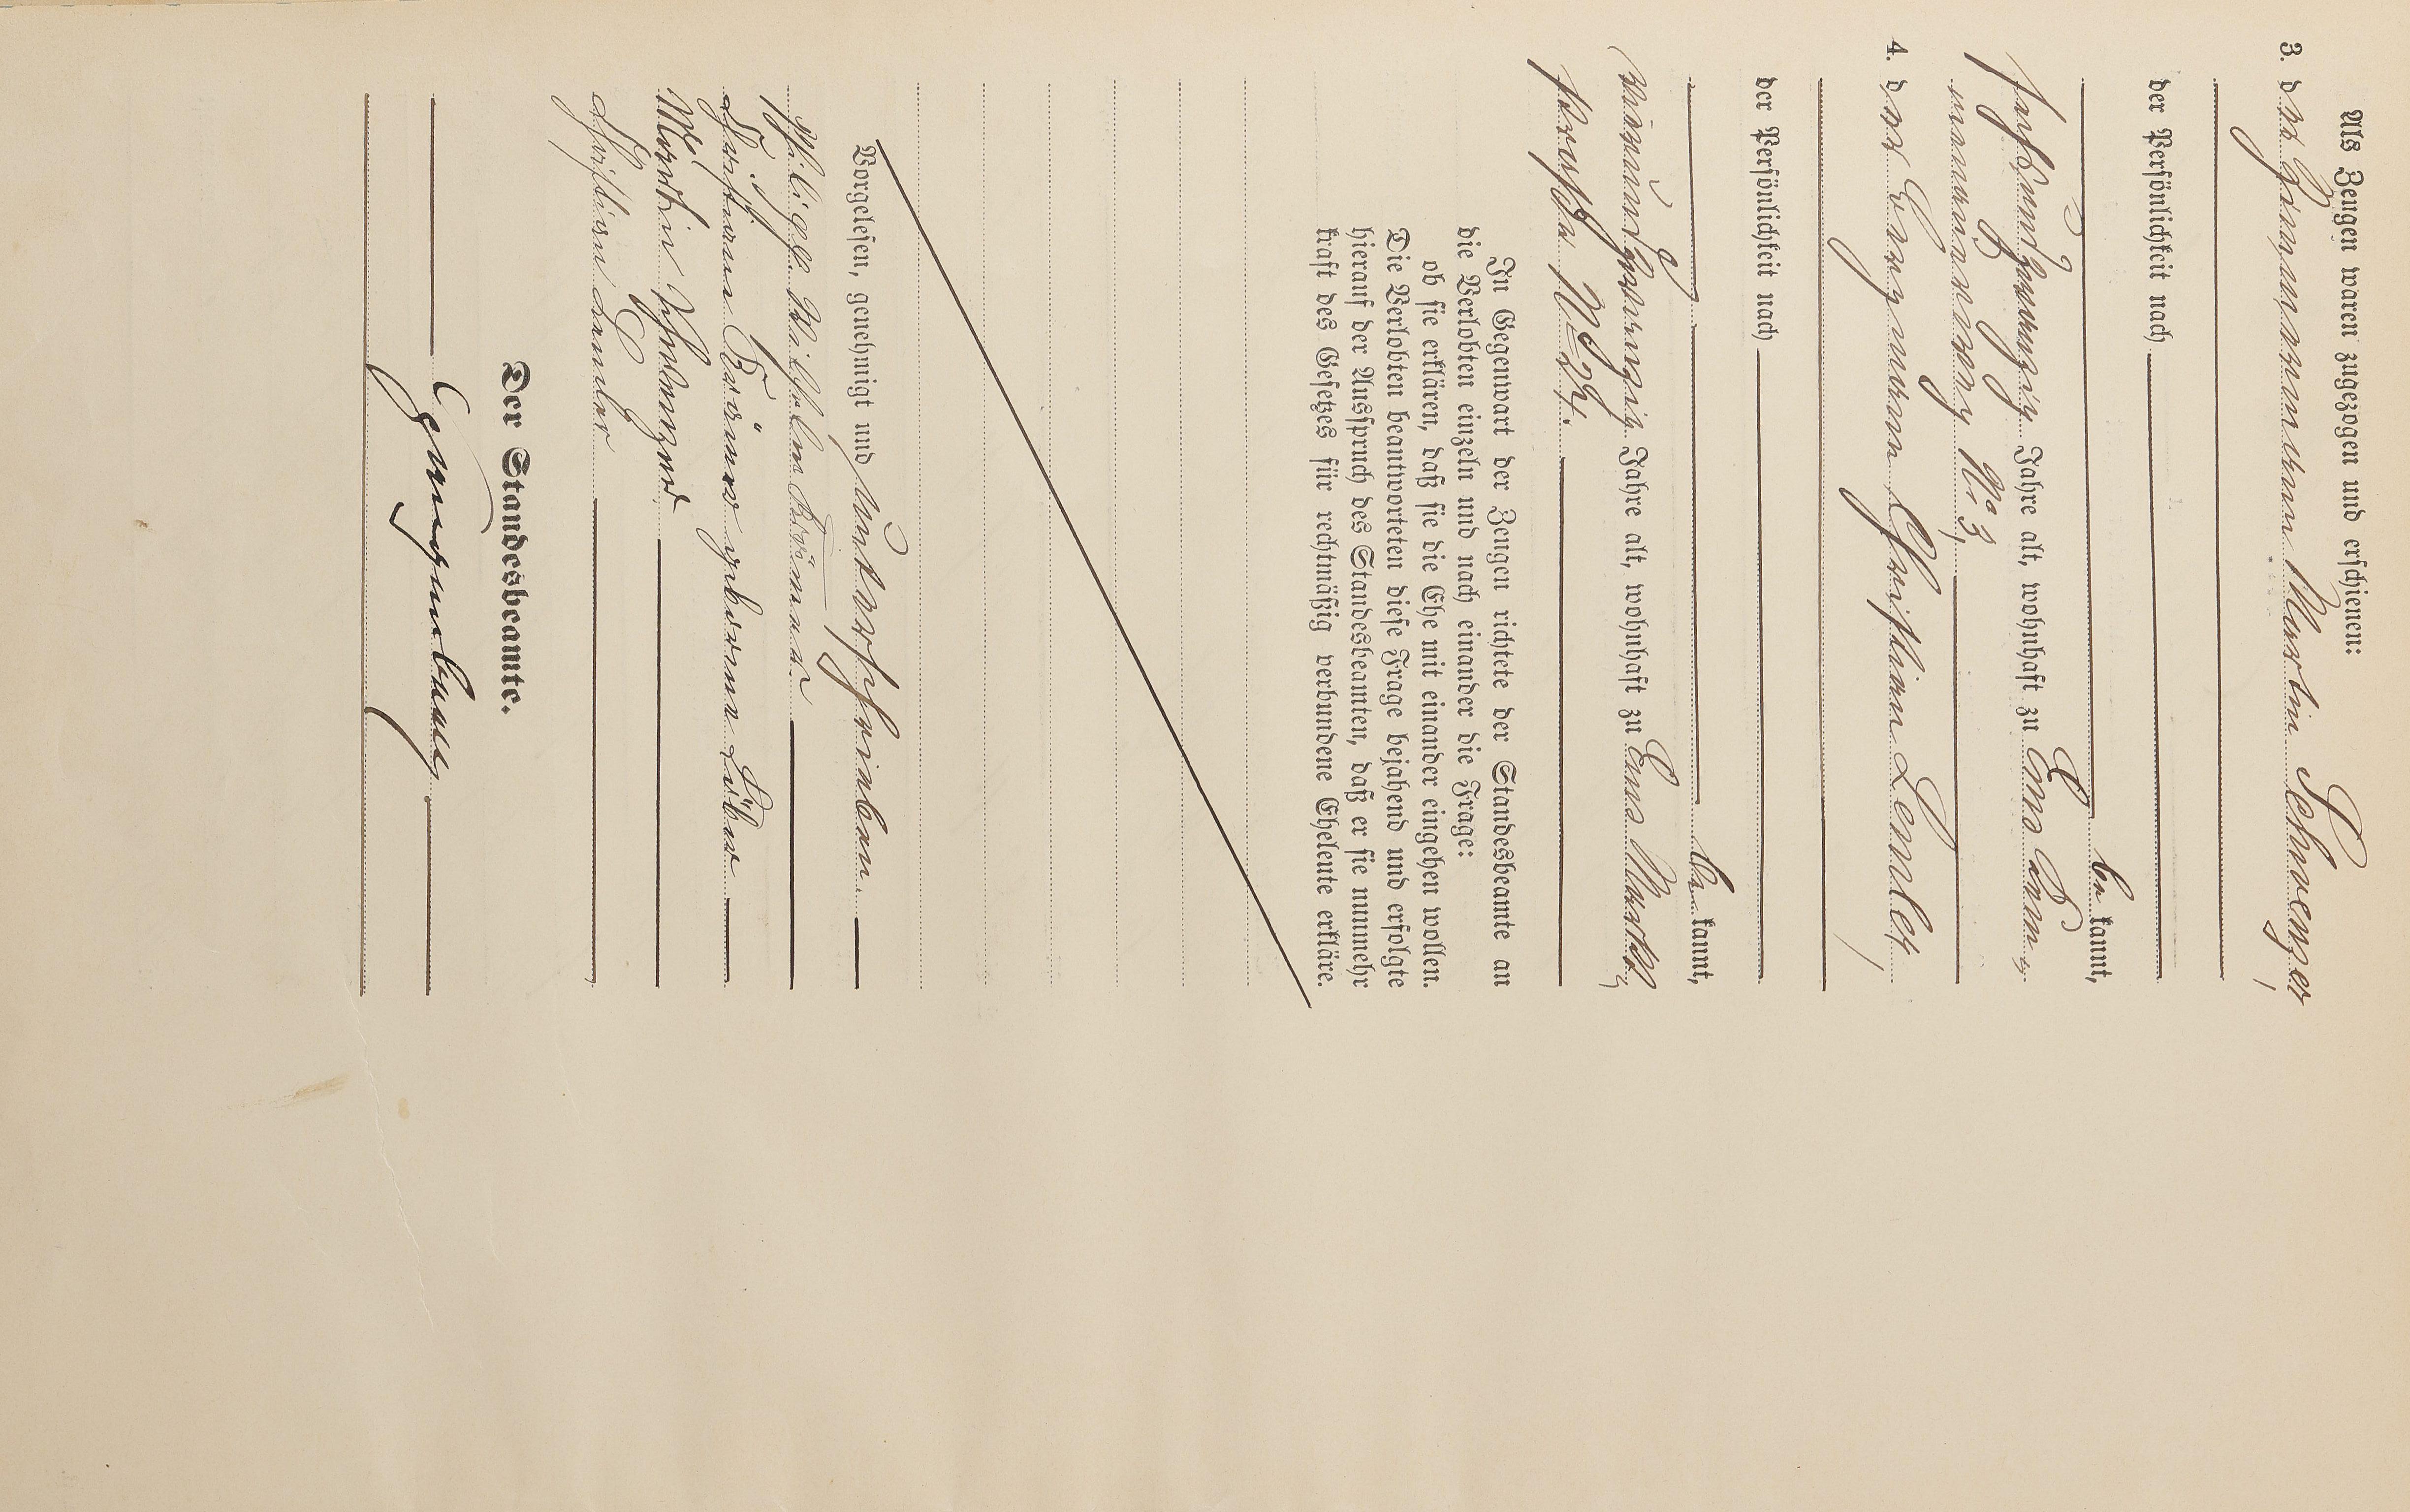 Als Zeugen waren zugezogen und erschienen:
3. der Zimmermann Martin Schwenzer,
der Persönlichkeit nach
be kannt,
sechsundzwanzig Jahre alt, wohnhaft zu Ems
No 3,
4. der Christian Lemler,
der Persönlichkeit nach
be kannt,
Jahre alt, wohnhaft zu Ems
No 24.
In Gegenwart der Zeugen richtete der Standesbeamte an
die Verlobten einzeln und nach einander die Frage:
ob sie erklären, daß sie die Ehe mit einander eingehen wollen.
Die Verlobten beantworteten diese Frage bejahend und erfolgte
hierauf der Ausspruch des Standesbeamten, daß er sie nunmehr
kraft des Gesetzes für rechtmäßig verbundene Eheleute erkläre.
Vorgelesen, genehmigt und unterschrieben.
Philipp Wilhelm
geborene
Martin Schwenzer
Christian Lemler
Der Standesbeamte.